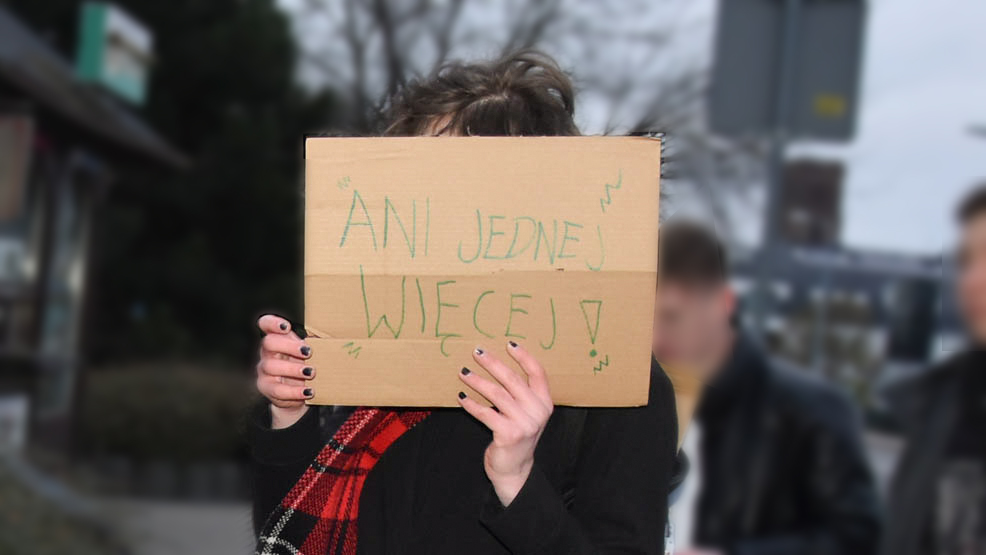 ANI JEDNEJ
WIĘCEJ!